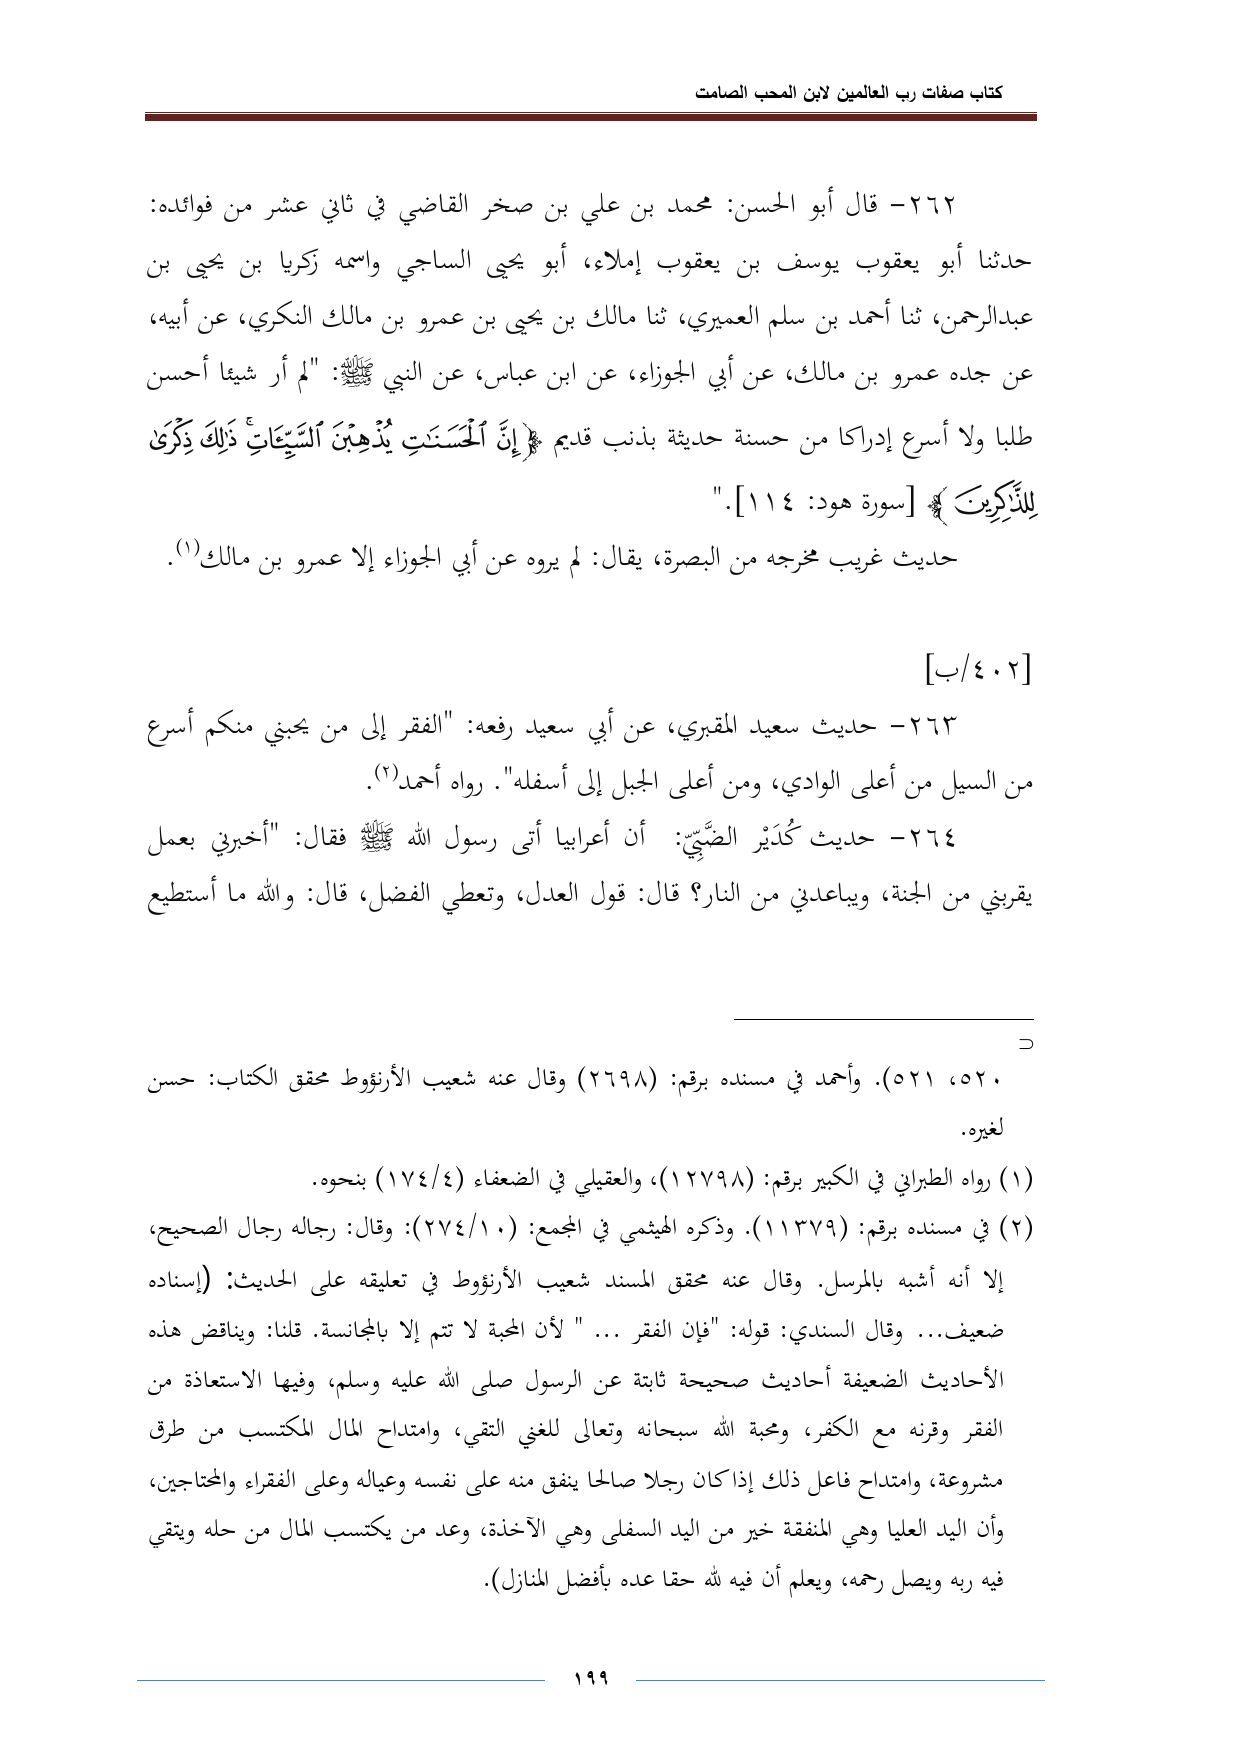 كتاب صفات رب العالمين لابن المحب الصامت
٢٦٢- قال أبو الحسن: محمد بن علي بن صخر القاضي في ثاني عشر من فوائده:
حدثنا أبو يعقوب يوسف بن يعقوب إملاء، أبو يحيى الساجي واسمه زكريا بن يحيى بن
عبدالرحمن، ثنا أحمد بن سلم العميري، ثنا مالك بن يحيى بن عمرو بن مالك النكري، عن أبيه،
عن جده عمرو بن مالك، عن أبي الجوزاء، عن ابن عباس، عن النبي ﷺ: "لم أر شيئا أحسن
طلبا ولا أسرع إدراكا من حسنة حديثة بذنب قديم ﴿إِنَّ ٱلْحَسَنَٰتِ يُذْهِبْنَ ٱلسَّيِّـَٔاتِ ۚ ذَٰلِكَ ذِكْرَىٰ
لِلذَّٰكِرِينَ ﴾ [سورة هود: ١١٤]."
حديث غريب مخرجه من البصرة، يقال: لم يروه عن أبي الجوزاء إلا عمرو بن مالك(١).
[٤٠٢/ب]
٢٦٣- حديث سعيد المقبري، عن أبي سعيد رفعه: "الفقر إلى من يحبني منكم أسرع
من السيل من أعلى الوادي، ومن أعلى الجبل إلى أسفله". رواه أحمد(٢).
٢٦٤- حديث كُدَيْر الضَّبِّيّ: أن أعرابيا أتى رسول الله ﷺ فقال: "أخبرني بعمل
يقربني من الجنة، ويباعدني من النار؟ قال: قول العدل، وتعطي الفضل، قال: والله ما أستطيع
⊃
٥٢٠، ٥٢١). وأحمد في مسنده برقم: (٢٦٩٨) وقال عنه شعيب الأرنؤوط محقق الكتاب: حسن
لغيره.
(١) رواه الطبراني في الكبير برقم: (١٢٧٩٨)، والعقيلي في الضعفاء (١٧٤/٤) بنحوه.
(٢) في مسنده برقم: (١١٣٧٩). وذكره الهيثمي في المجمع: (٢٧٤/١٠): وقال: رجاله رجال الصحيح،
إلا أنه أشبه بالمرسل. وقال عنه محقق المسند شعيب الأرنؤوط في تعليقه على الحديث: (إسناده
ضعيف... وقال السندي: قوله: "فإن الفقر ... " لأن المحبة لا تتم إلا بالمجانسة. قلنا: ويناقض هذه
الأحاديث الضعيفة أحاديث صحيحة ثابتة عن الرسول صلى الله عليه وسلم، وفيها الاستعاذة من
الفقر وقرنه مع الكفر، ومحبة الله سبحانه وتعالى للغني التقي، وامتداح المال المكتسب من طرق
مشروعة، وامتداح فاعل ذلك إذا كان رجلا صالحا ينفق منه على نفسه وعياله وعلى الفقراء والمحتاجين،
وأن اليد العليا وهي المنفقة خير من اليد السفلى وهي الآخذة، وعد من يكتسب المال من حله ويتقي
فيه ربه ويصل رحمه، ويعلم أن فيه لله حقا عده بأفضل المنازل).
١٩٩